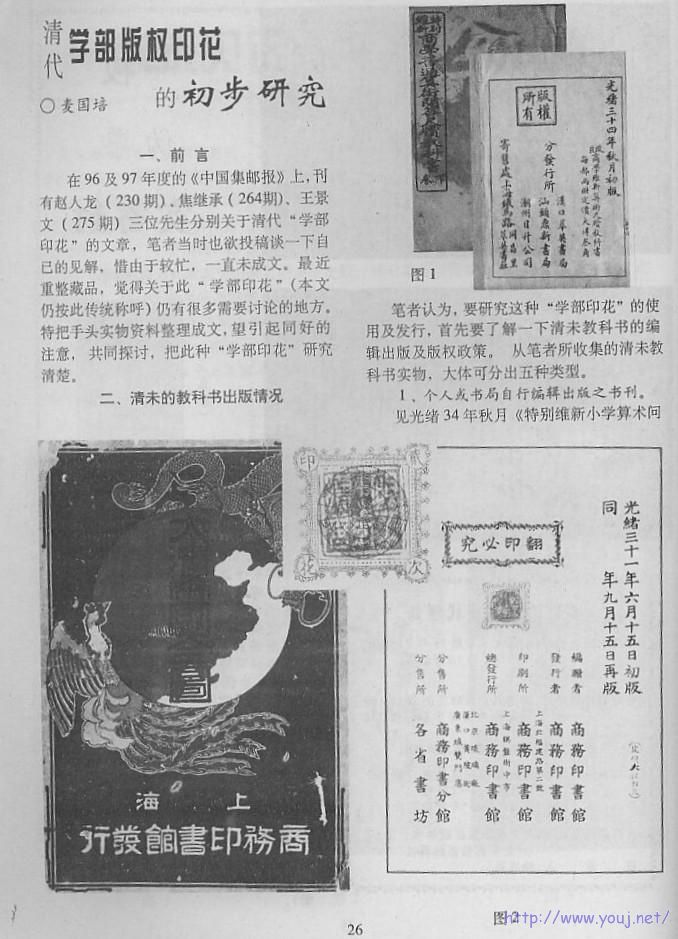 清代 学部版权印花
的初步研究
○ 麦国培
一、前 言
在96及97年度的《中国集邮报》上,刊
有赵人龙(230期)、焦继承(264期)、王景
文(275期)三位先生分别关于清代“学部
印花”的文章,笔者当时也欲投稿谈一下自
已的见解,惜由于较忙,一直未成文。最近
重整藏品,觉得关于此“学部印花”(本文
仍按此传统称呼)仍有很多需要讨论的地方。
特把手头实物资料整理成文,望引起同好的
注意, 共同探讨,把此种“学部印花”研究
清楚。
二、清末的教科书出版情况
光緒三十四年秋月初版
版權所有
分發行所
漢口萃英書局
汕頭鼎新書局
潮州日升公司
图1
笔者认为,要研究这种“学部印花”的使
用及发行,首先要了解一下清末教科书的编
辑出版及版权政策。 从笔者所收集的清末教
科书实物,大体可分出五种类型。
1、个人或书局自行编辑出版之书刊。
见光绪34年秋月《特别维新小学算术问
圖
上海
商務印書館發行
印
貳
花
次
光緒三十一年六月十五日初版
同 年九月十五日再版
翻印必究
編纂者 商務印書館
發行者 商務印書館
上海北福建路第二號
印刷所 商務印書館
上海棋盤街中市
總發行所 商務印書館
分售所 商務印書分館
分售所 各省書坊
图2
26
http://www.youj.net/